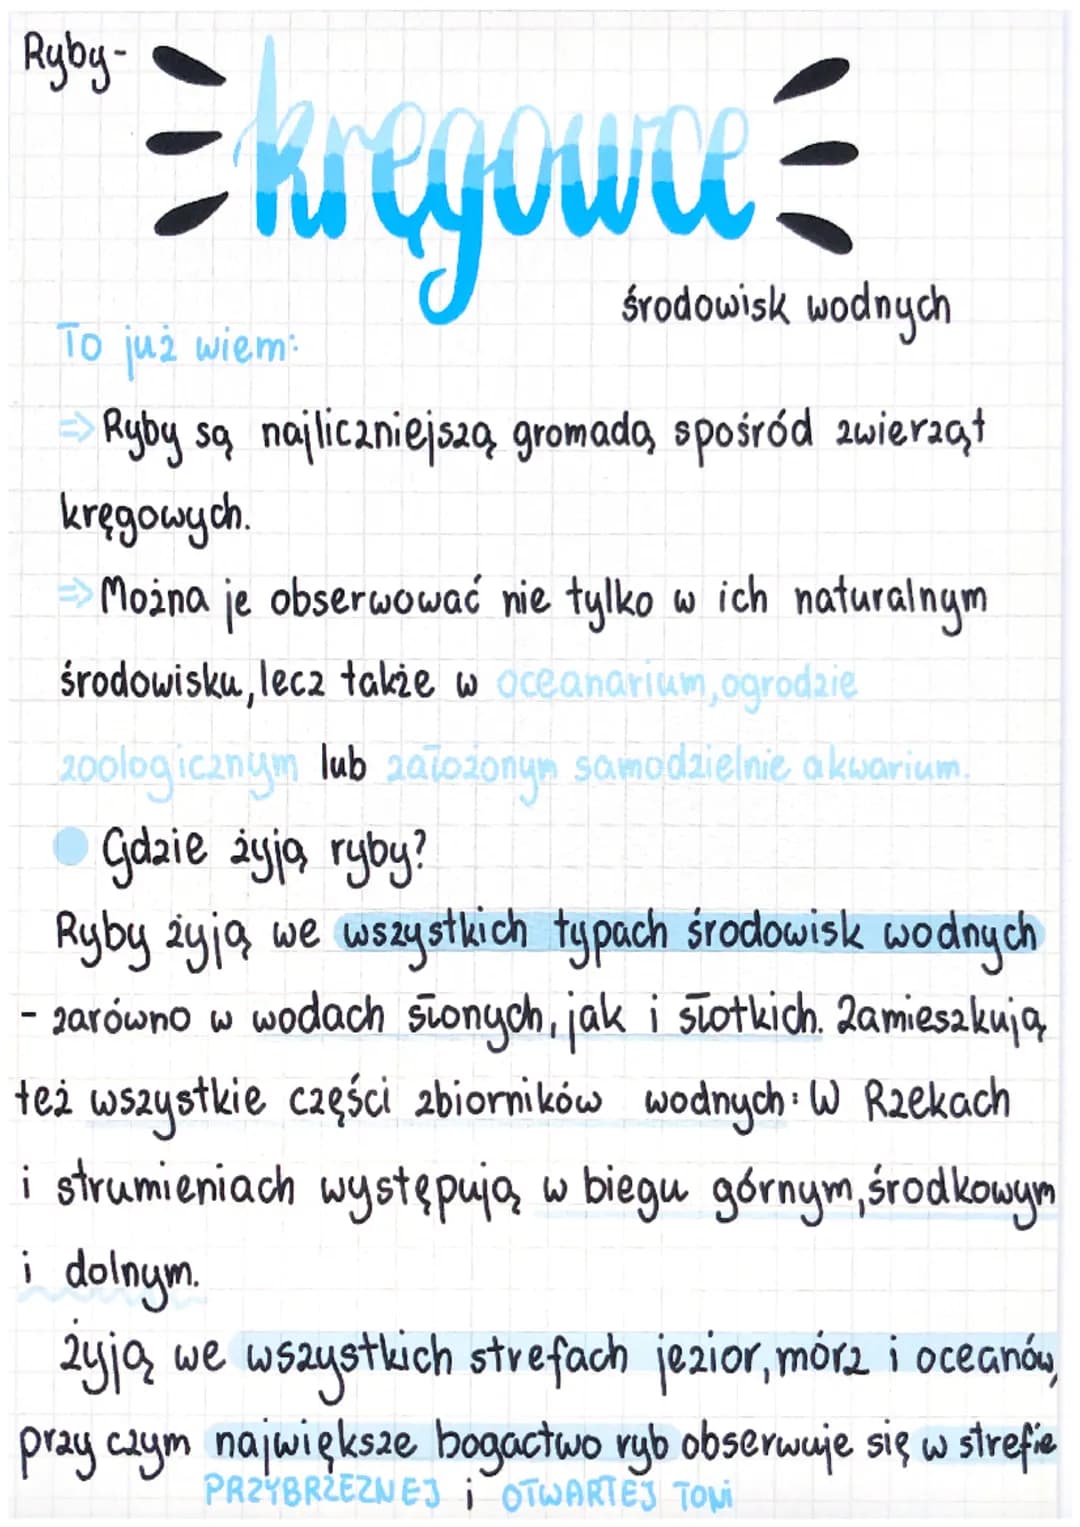 Ryby-
kręgowce
środowisk wodnych
To już wiem:
⇒ Ryby są najliczniejszą gromadą spośród zwierząt
kręgowych.
⇒ Można je obserwować nie tylko w ich naturalnym
środowisku, lecz także w oceanarium, ogrodzie
zoologicznym lub założonym samodzielnie akwarium.
● Gdzie żyją ryby?
Ryby żyją we wszystkich typach środowisk wodnych
- zarówno w wodach słonych, jak i słotkich. Zamieszkują
też wszystkie części zbiorników wodnych: W Rzekach
i strumieniach występują w biegu górnym, środkowym
i dolnym.
żyją we wszystkich strefach jezior, mórz i oceanów,
przy czym największe bogactwo ryb obserwuje się w strefie
PRZYBRZEŻNEJ i OTWARTEJ TONI